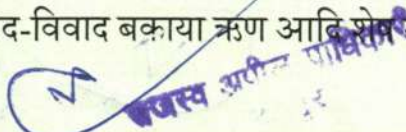 द-विवाद बकाया ऋण आदि शेष
राजस्व अपील प्राधिकारी